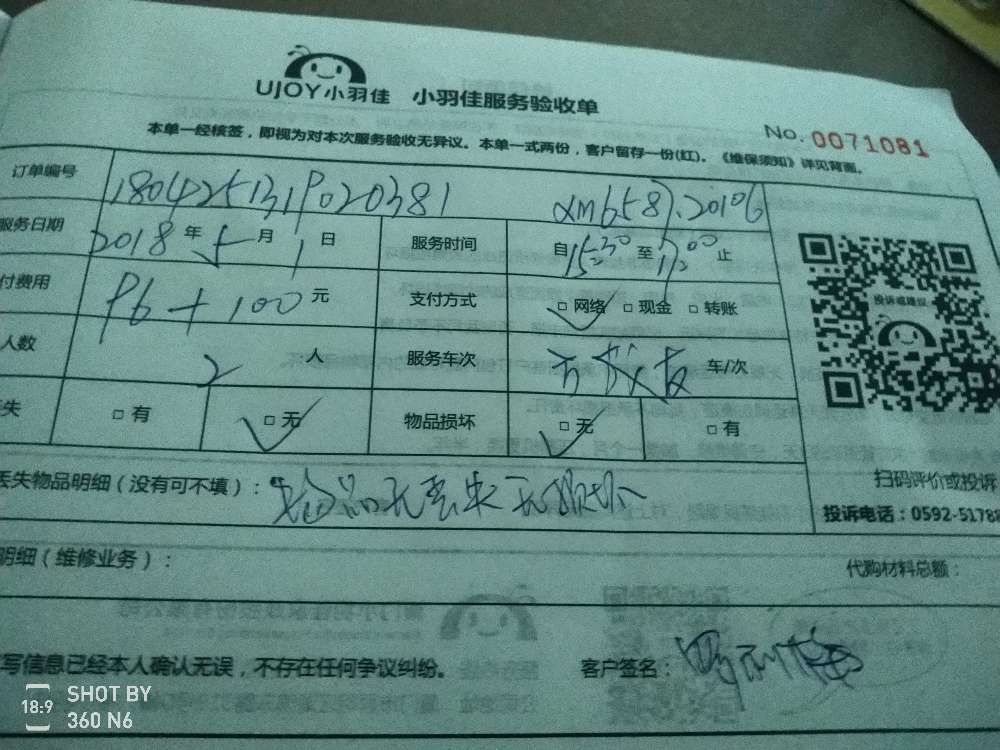 UJOY小羽佳 小羽佳服务验收单
No. 0071081
本单一经核签，即视为对本次服务验收无异议。本单一式两份，客户留存一份(红)。《维保须知》详见背面。
订单编号 180425131P020381
服务日期 2018 年 5 月 1 日 服务时间 自 15:30 至 17:00 止
付费用 96+100 元 支付方式 □ 网络 □ 现金 □ 转账
人数 2 人 服务车次 车/次
失 □ 有 □ 无 物品损坏 □ 无 □ 有
投诉或建议
扫码评价或投诉
投诉电话：0592-5178
丢失物品明细（没有可不填）： 物品无丢失无损坏
明细（维修业务）： 代购材料总额：
写信息已经本人确认无误，不存在任何争议纠纷。 客户签名：
18:9 SHOT BY
360 N6